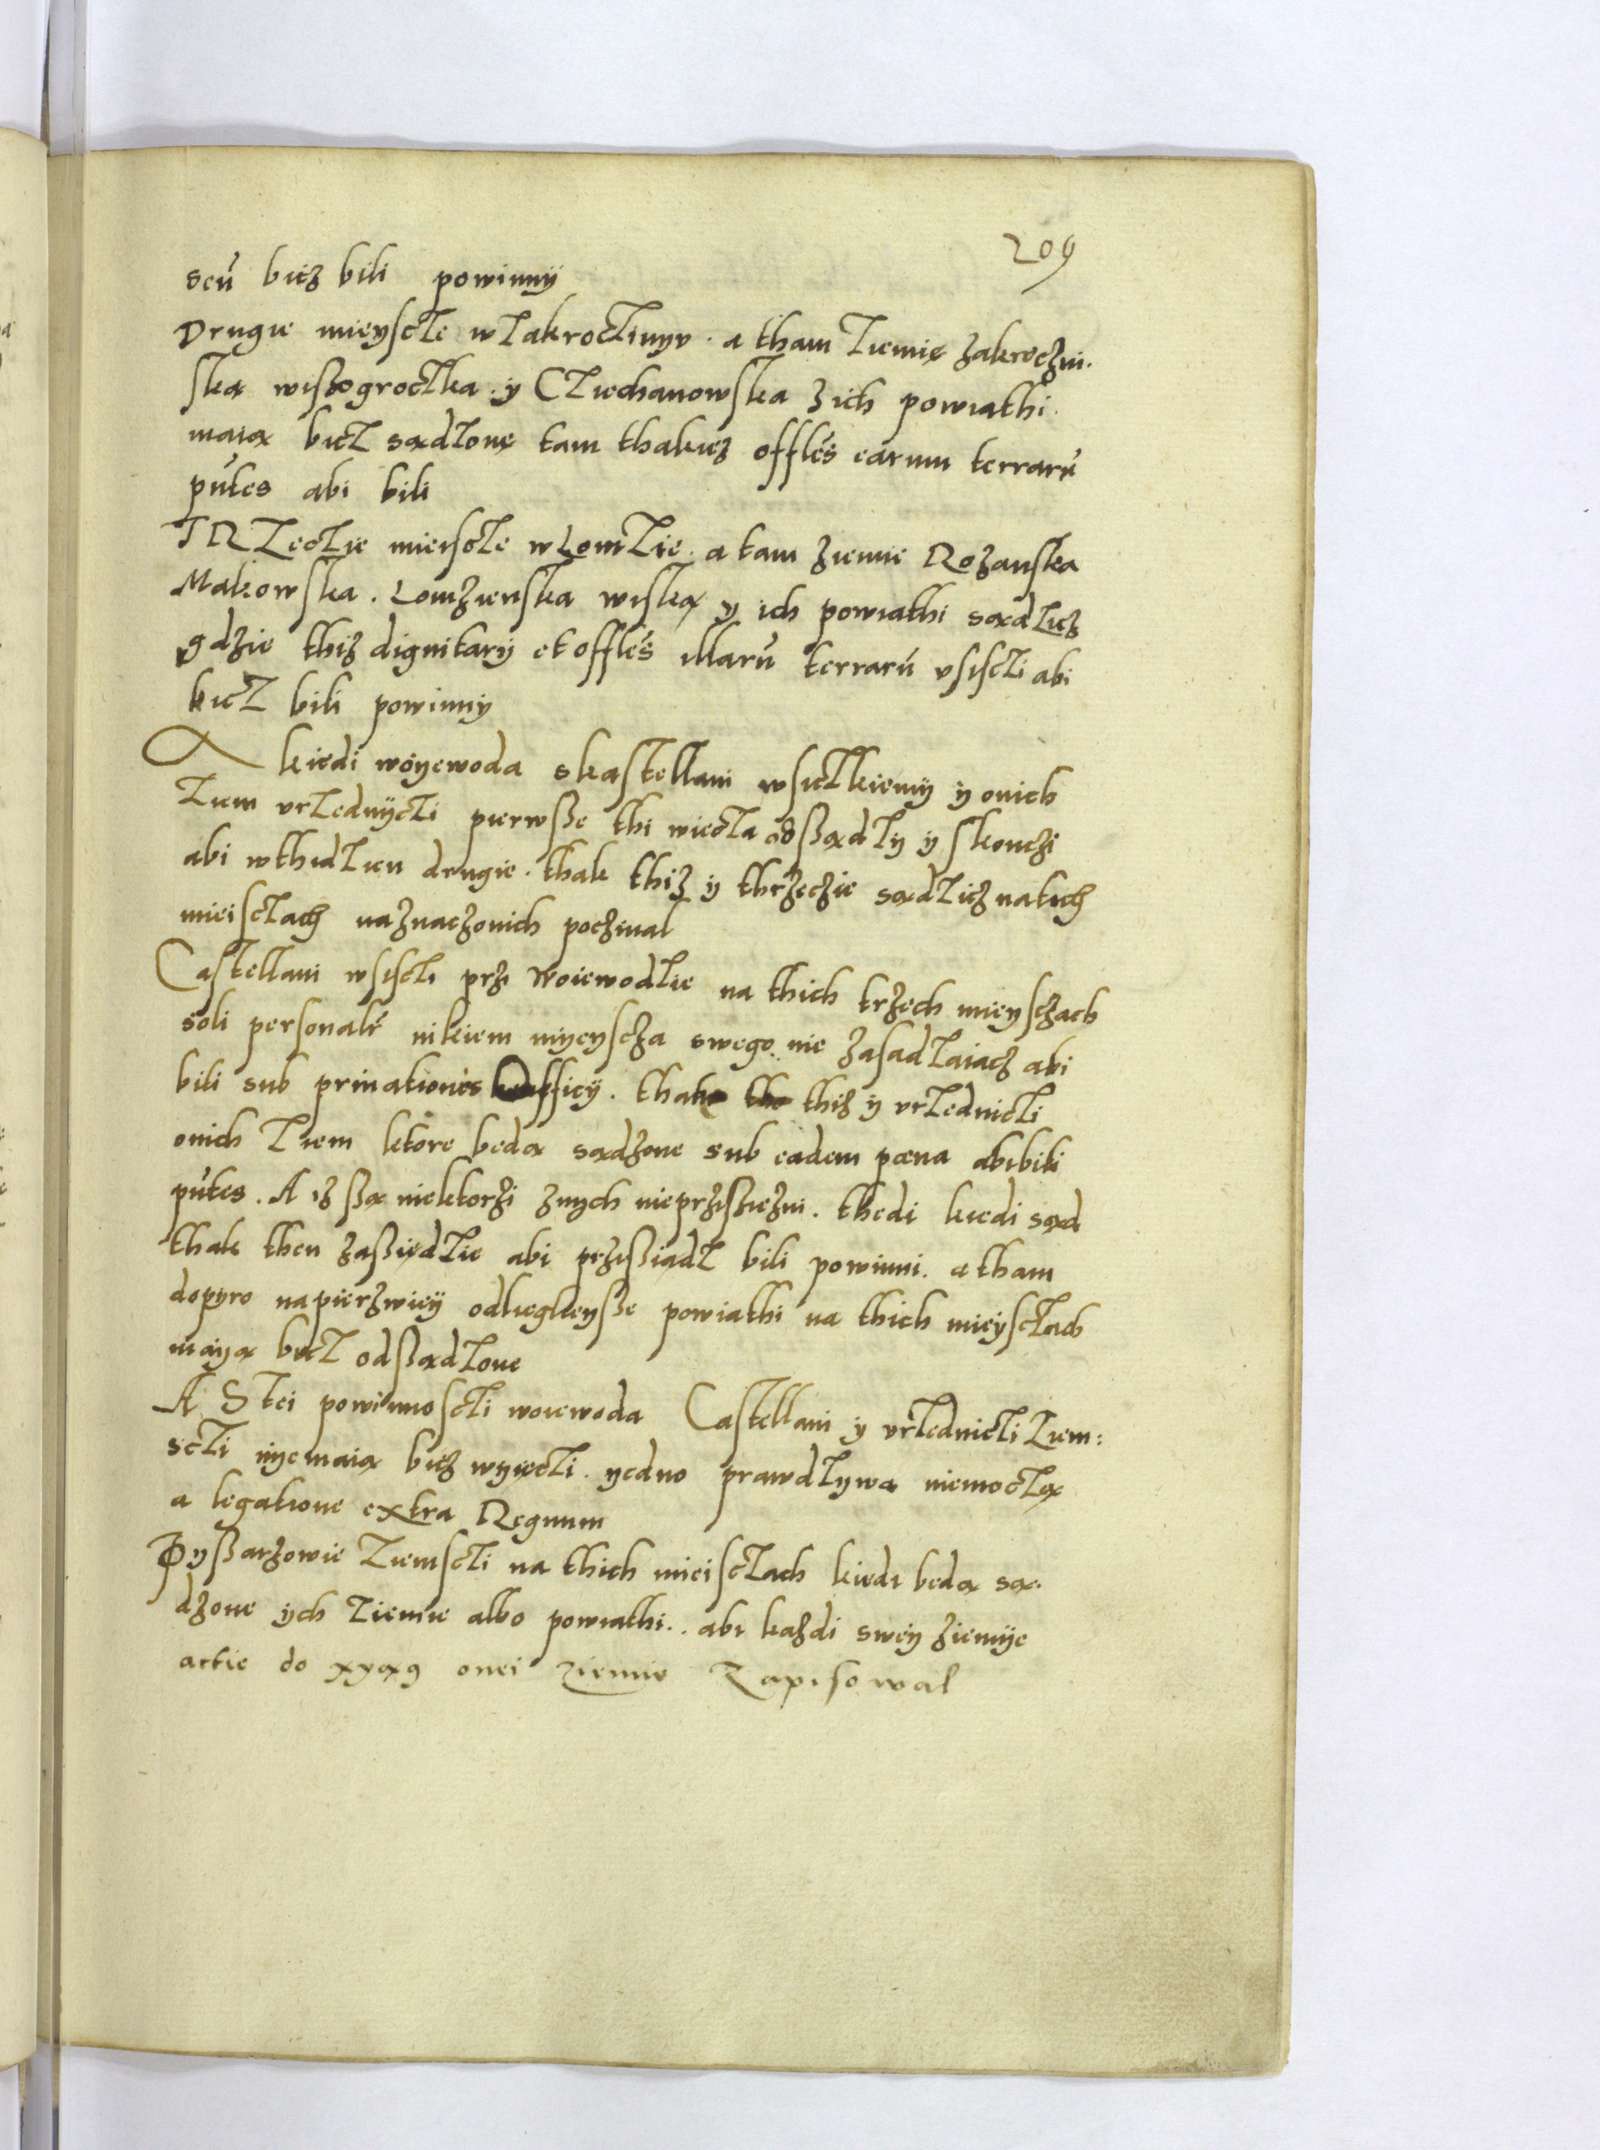 209
scú bicz bili powinnÿ
Drugie mieyscze w Zakroczimyv . a tham ziemię zakroczin.
ska wißogroczka . ÿ Cziechanowska z ich powiathi .
maią bicz sądzonę tam thakiez offles earum terrarú
pútes abi bili
TRzeczie mieiscze w Lomzie . a tam ziemie Rozanska
Makowska . Lomzienska wiska y ich powiathi sądzicz
gdzie thiz dignitarÿ et offles illarú terrarú vsisczi abi
bicz bili powinny
A kiedi woÿewoda skastellani wsiczkiemÿ ÿ onich
ziem vrzednÿczi pierwsße thi wiecza odßądzÿ ÿ skonczi
abi w thidzien drugie . thak thiz ÿ thrzeczie sądzicz na tich
mieisczach naznaczonich poczinal
Castellani wsisczi przi Woiewodzie na thich trzech mieysczach
soli personalr nikiem mÿeyscza swego nie zasadzaiacz abi
bili sub priuationés officÿ . thak thiz ÿ vrzedniczi
onich ziem ktore bedą sądzone sub eadem pœna abi bili
pútes . A iz ßą niektorzi znÿch nieprzißiezni . thedi kiedi sąd
thak then zaßiedzie abi przißiądz bili powinni . a tham
dopyro napierzwiej odlieglieyße powiathi na thich mieysczach
maÿą bicz odßądzone
A S tei powinnosczi woiewoda Castellani ÿ vrzedniczi ziem:
sczi nÿe maią bicz wyięczi . yedno prawdzÿwą niemoczą
a legatione extra Regnum
Pÿßarzowie ziemsczi na thich mieisczach kiedi bedą są.
dzone ÿch ziemie albo powiathi . . abi kazdi sweÿ ziemÿe
actie do xyąg onei ziemie zapisowal